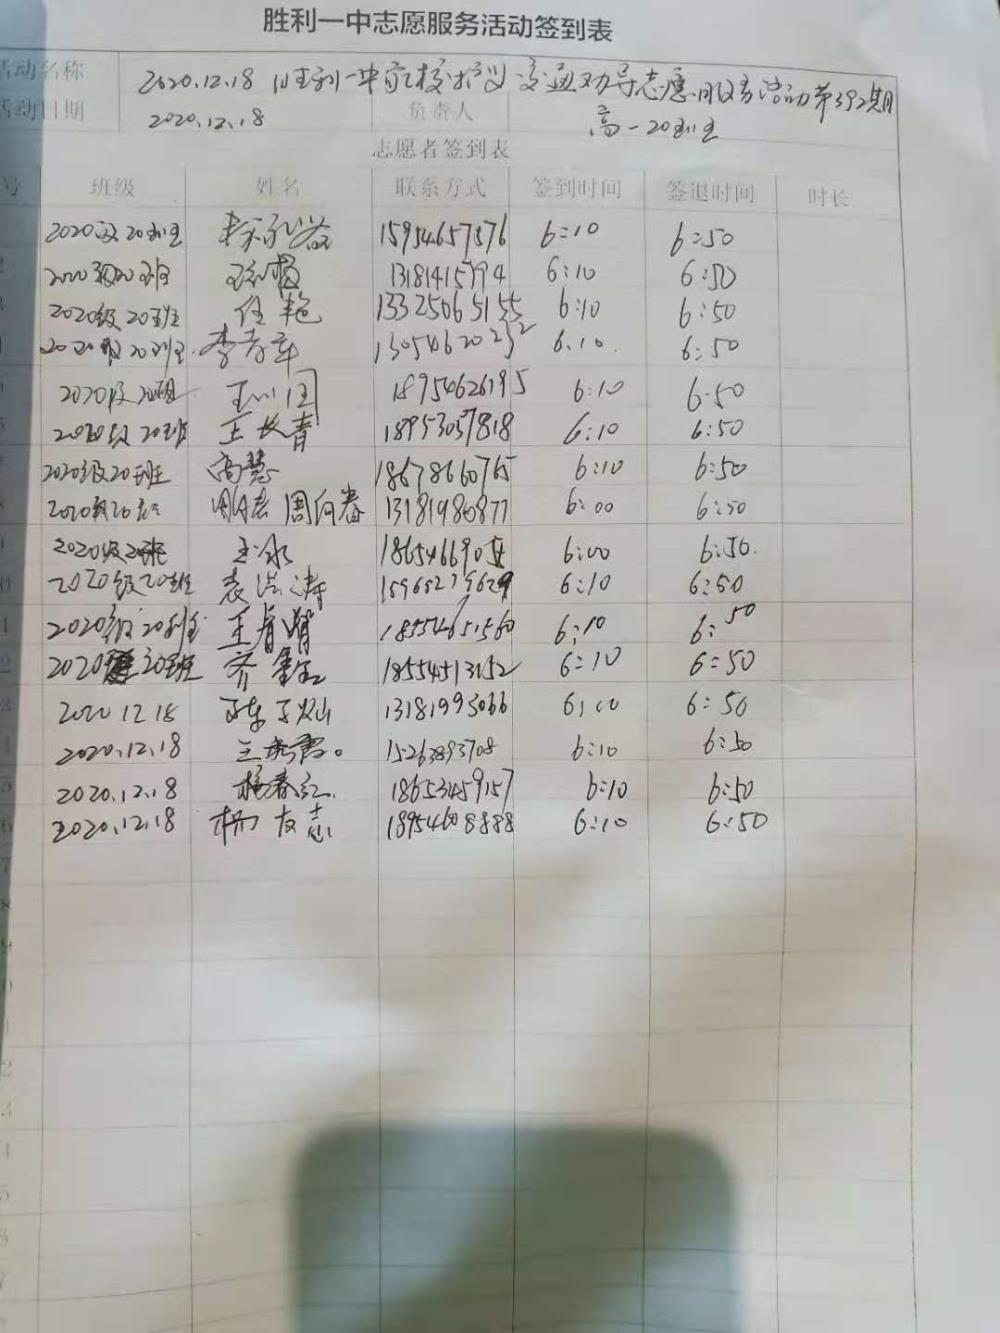 胜利一中志愿服务活动签到表
活动名称 2020.12.18 胜利一中 护义交通劝导志愿服务活动第392期
活动日期 2020.12.18 负责人 高一20班
志愿者签到表
号 班级 姓名 联系方式 签到时间 签退时间 时长
2020级20班 15954657876 6:10 6:50
2020级20班 13181415794 6:10 6:50
2020级20班 任艳 13325065155 6:10 6:50
2020级20班 李 13054620232 6:10 6:50
2020级20班 王 18954626195 6:10 6:50
2020级20班 王长青 18953057818 6:10 6:50
2020级20班 高慧 18678660765 6:10 6:50
2020级20班 周向春 13181980877 6:00 6:50
2020级20班 王永 6:00 6:50
2020级20班 袁洪涛 6:10 6:50
2020级20班 王睿 18554651560 6:10 6:50
2020级20班 齐 18554513152 6:10 6:50
2020 12 18 13181993066 6:00 6:50
2020.12.18 王秀霞 15263893708 6:10 6:50
2020.12.18 杨春红 18653459157 6:10 6:50
2020.12.18 杨友志 18954608888 6:10 6:50